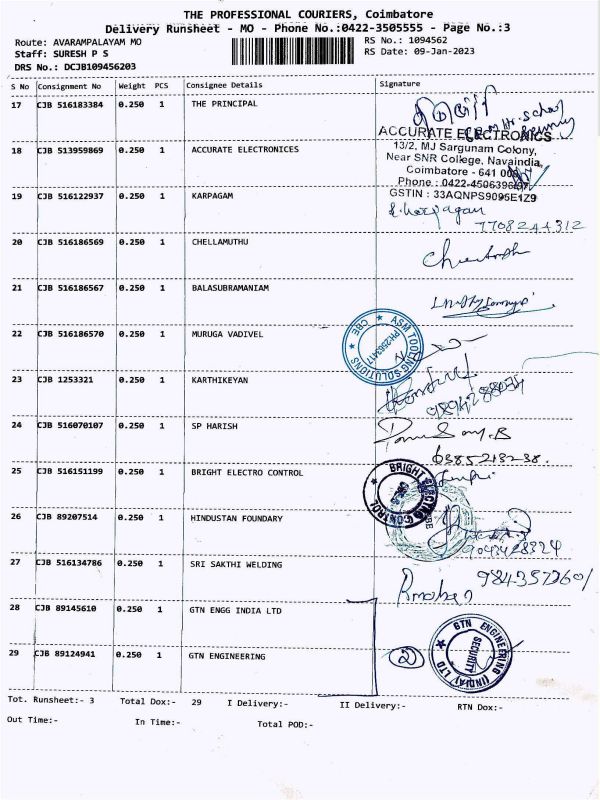 THE PROFESSIONAL COURIERS, Coimbatore
Delivery Runsheet - MO - Phone No.:0422-3505555 - Page No.:3
Route: AVARAMPALAYAM MO
RS No.: 1094562
Staff: SURESH P S
RS Date: 09-Jan-2023
DRS No.: DCJB109456203
S No Consignment No Weight PCS Consignee Details Signature
17 CJB 516183384 0.250 1 THE PRINCIPAL
18 CJB 513959869 0.250 1 ACCURATE ELECTRONICES
ACCURATE ELECTRONICS
13/2, MJ Sargunam Colony,
Near SNR College, Navaindia,
Coimbatore - 641 006
Phone : 0422-4506396/97
GSTIN : 33AQNPS9095E1Z9
19 CJB 516122937 0.250 1 KARPAGAM
7708244312
20 CJB 516186569 0.250 1 CHELLAMUTHU
21 CJB 516186567 0.250 1 BALASUBRAMANIAM
22 CJB 516186570 0.250 1 MURUGA VADIVEL
ASM TOOLING SOLUTIONS
CBE
PH:2563417
23 CJB 1253321 0.250 1 KARTHIKEYAN
24 CJB 516070107 0.250 1 SP HARISH
6385218238.
25 CJB 516151199 0.250 1 BRIGHT ELECTRO CONTROL
BRIGHT ELECTRO CONTROL
26 CJB 89207514 0.250 1 HINDUSTAN FOUNDARY
27 CJB 516134786 0.250 1 SRI SAKTHI WELDING
28 CJB 89145610 0.250 1 GTN ENGG INDIA LTD
29 CJB 89124941 0.250 1 GTN ENGINEERING
2
GTN ENGINEERING (INDIA) LTD
SECURITY
Tot. Runsheet:- 3 Total Dox:- 29 I Delivery:- II Delivery:- RTN Dox:-
Out Time:- In Time:- Total POD:-